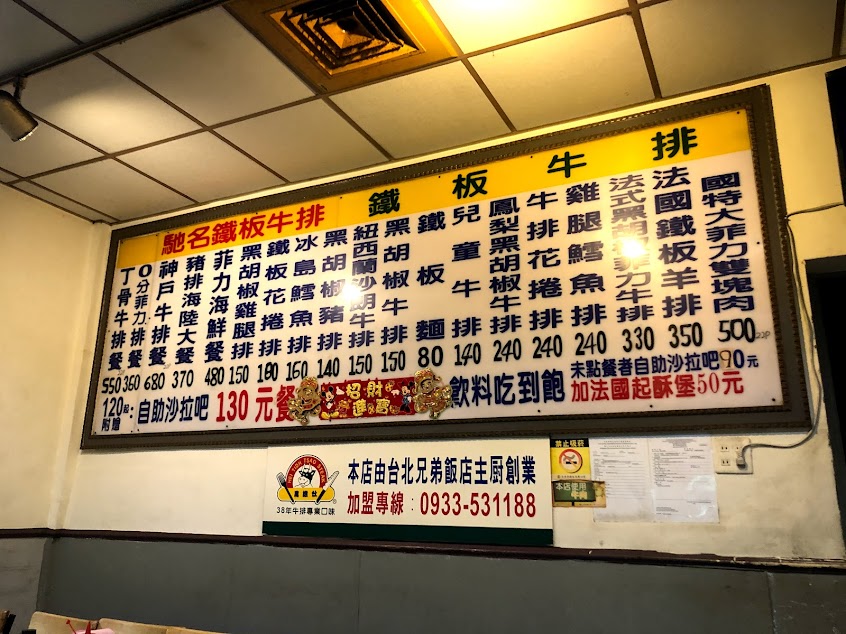 馳名鐵板牛排 鐵板牛排
丁骨牛排餐 550
O分菲力牛排餐 350
神戶牛排餐 680
豬排海陸大餐 370
菲力海鮮餐 480
黑胡椒雞腿排 150
鐵板花捲排 160
冰島鱈魚排 160
黑胡椒豬排 140
紐西蘭沙朗牛排 150
黑胡椒牛排 150
鐵板麵 80
兒童牛排 140
鳳梨黑胡椒牛排 240
牛排花捲排 240
雞腿鱈魚排 240
法式黑胡椒菲力牛排 330
法國鐵板羊排 350
國特大菲力雙塊肉 500
120起附贈:自助沙拉吧130元餐
招財進寶
飲料吃到飽
未點餐者自助沙拉吧90元
加法國起酥堡50元
38年牛排專業口味
本店由台北兄弟飯店主厨創業
加盟專線:0933-531188
禁止吸菸
本店使用
牛肉